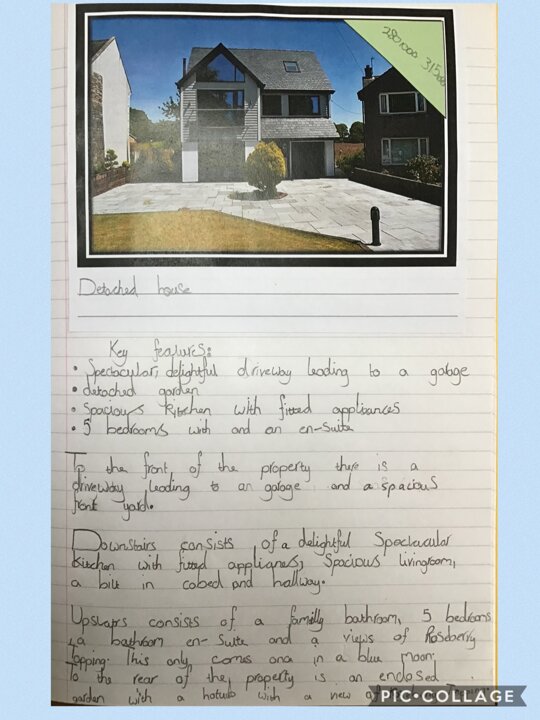 280000 315000
Detached house
Key features:
• Spectacular, delightful driveway leading to a garage
• detached garden
• Spacious Kitchen with fitted appliances
• 5 bedrooms with and an en-suite
To the front of the property there is a
driveway leading to an garage and a spacious
front yard.
Downstairs consists of a delightful Spectacular
Kitchen with fitted applianes, Spacious livingroom,
a bilt in cobed and hallway.
Upstairs consists of a familly bathroom, 5 bedrooms
, a bathroom en-Suite and a views of Roseberry
Topping. This only comes onc in a blue moon.
To the rear of the property is an enclosed
garden with a hotub with a new
PIC•COLLAGE